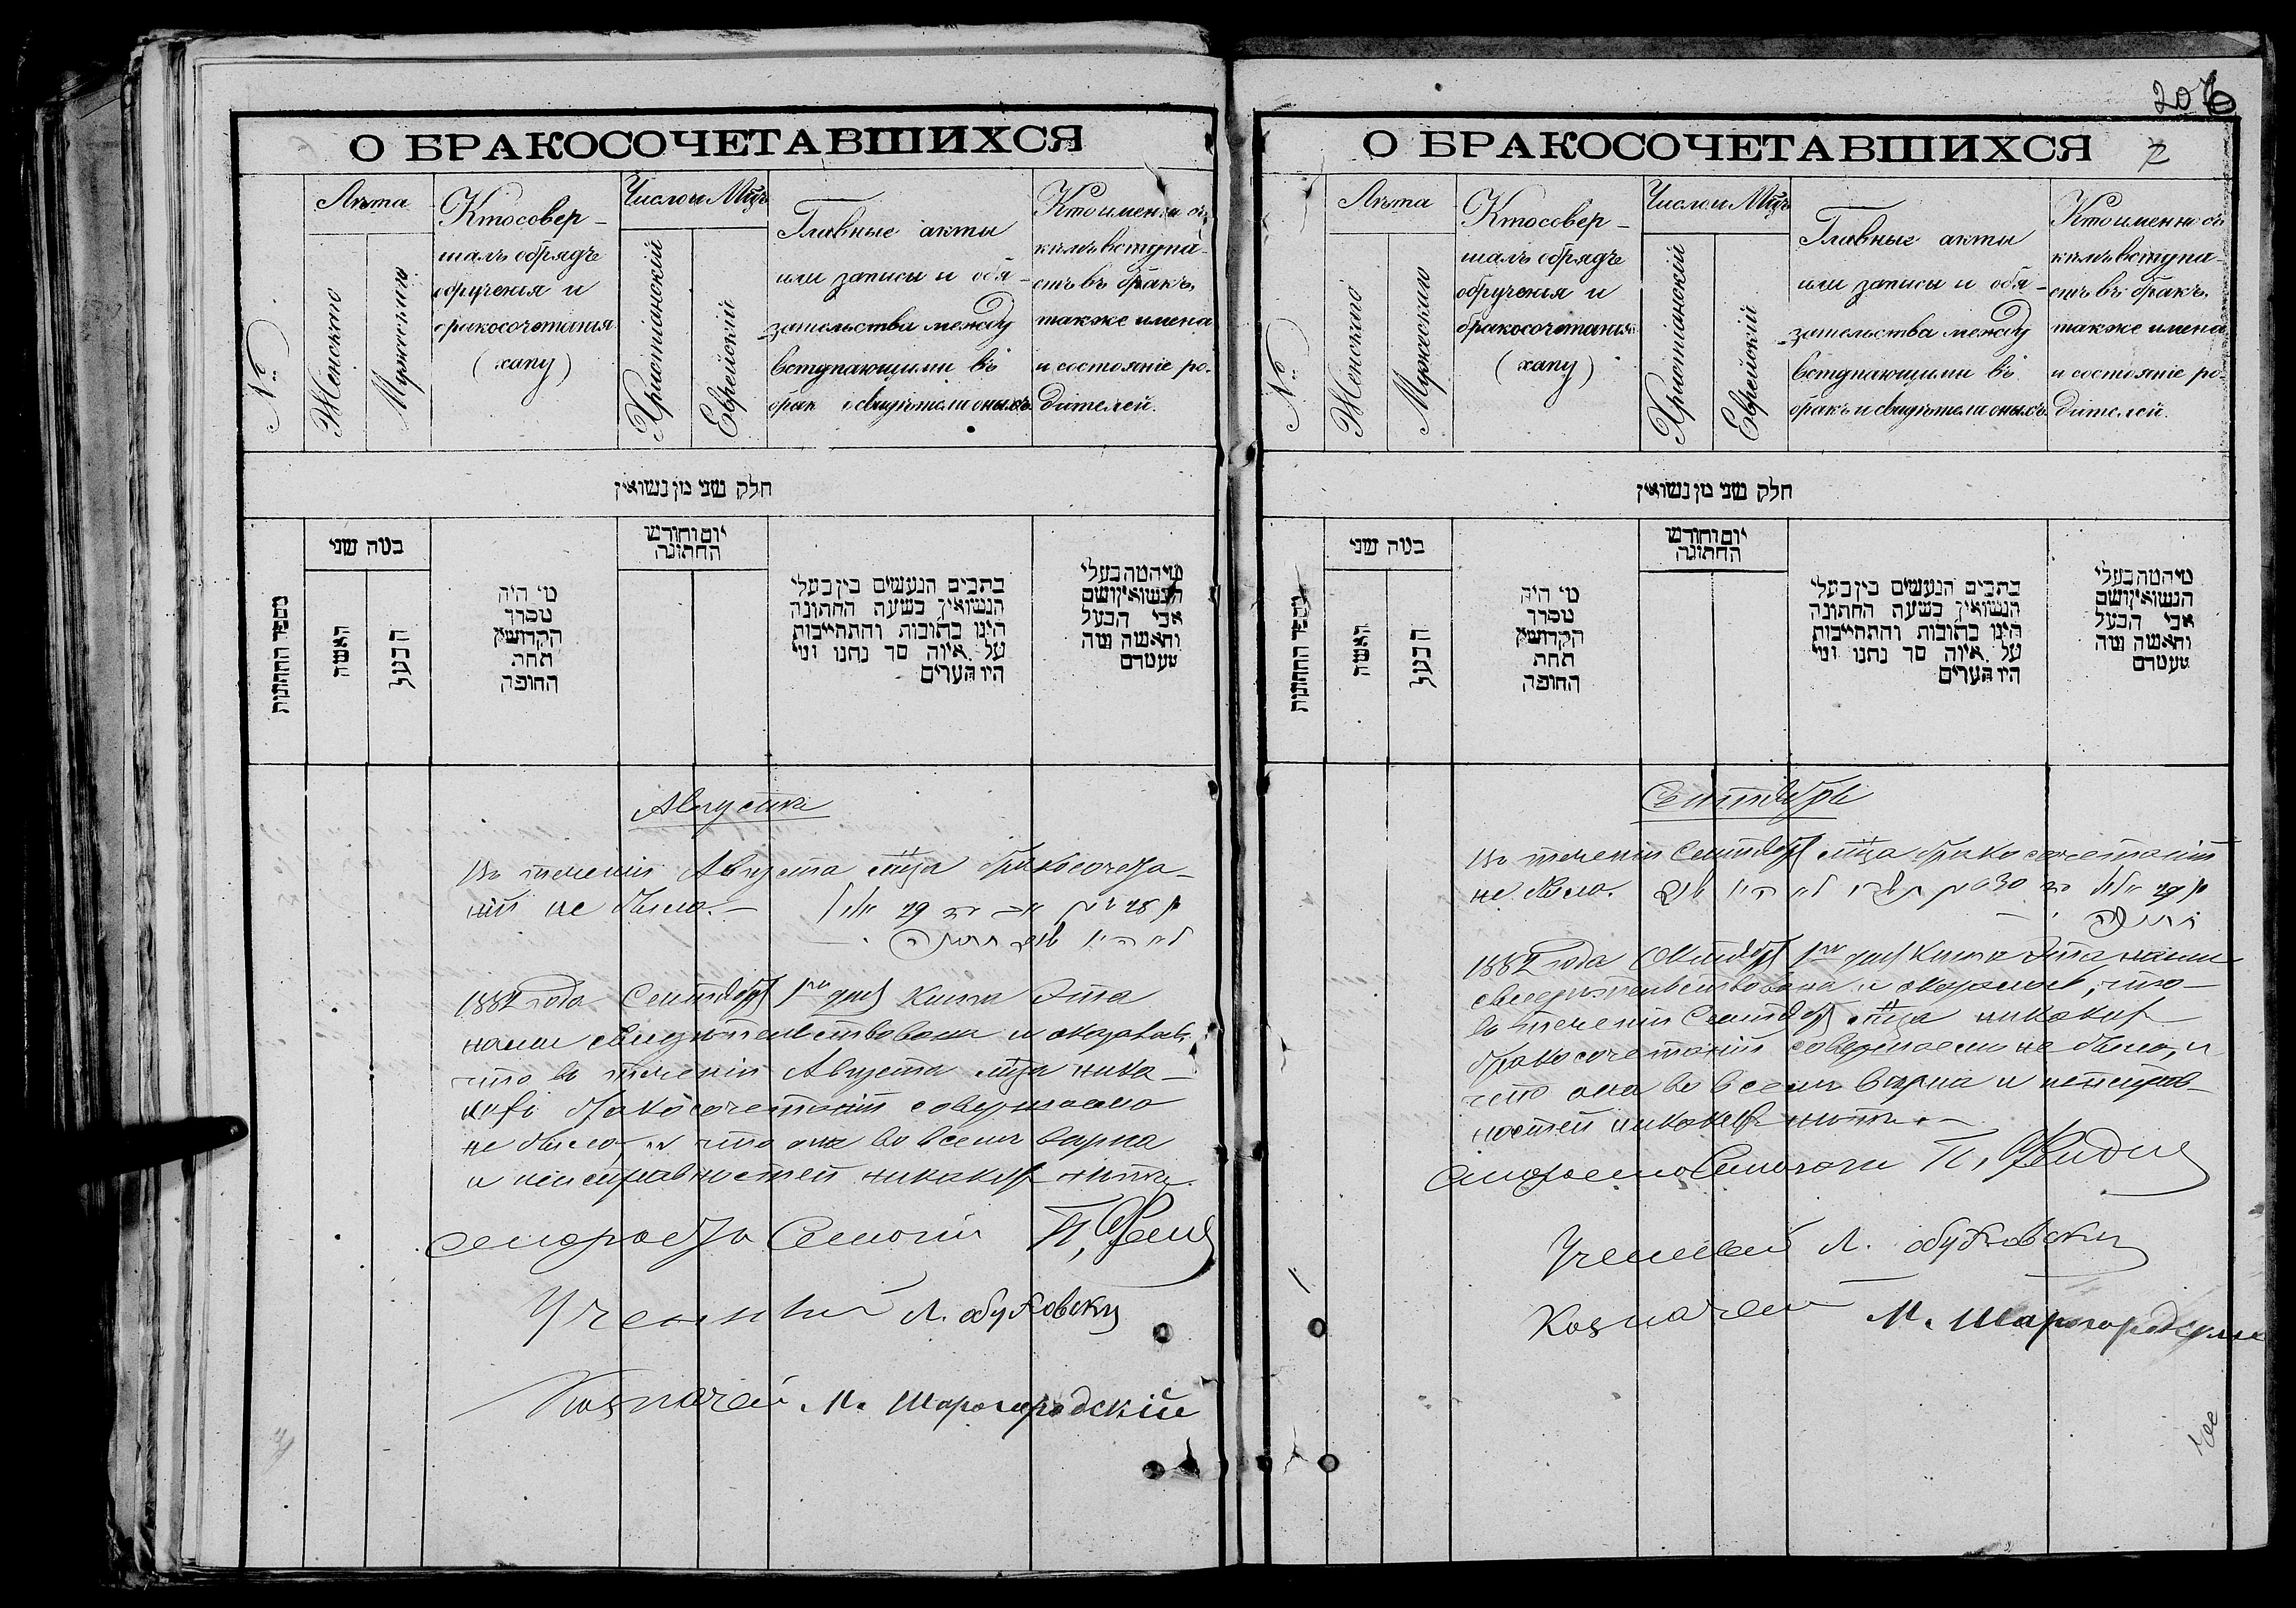 О БРАКОСОЧЕТАВШИХСЯ
№
Лѣта
Женскаго
Мужескаго
Кто совер-
шалъ обрядъ
обрученія и
бракосочетанія
(хапу)
Число и Мѣц.
Христіанскій
Еврейскій
Главные акты
или записи и обя-
зательства между
вступающими въ
бракъ и свидѣтели оныхъ.
Кто именно съ
кѣмъ вступа-
етъ въ бракъ,
также имена
и состояніе ро-
дителей.
חלק שני מן נשואין
מספר החתונות
כמה שני
האשה
הבעל
מי היה
מסדר
הקדושין
תחת
החופה
יום וחודש
החתונה
כתבים הנעשים בין בעלי
הנשואין בשעה החתונה
היינו כתובות והתחייבות
על איזה סך נתנו ומי
היו העדים
מיהמה בעלי
הנשואין ושם
אבי הבעל
והאשה ומה
מעמדם
Августъ
Въ теченіи Августа мѣца бракосочета-
ній не было.—
1882 года Сентября 1го дня книга эта
нами свидѣтельствована и оказалось,
что въ теченіи Августа мѣца ника-
кихъ бракосочетаній совершаемо
не было, и что она во всемъ вѣрна
и неисправностей никакихъ нѣтъ.
Ученый Л. Обуховскій
Казначей М. Шарогородскій
206
О БРАКОСОЧЕТАВШИХСЯ
7
№
Лѣта
Женскаго
Мужескаго
Кто совер-
шалъ обрядъ
обрученія и
бракосочетанія
(хапу)
Число и Мѣц.
Христіанскій
Еврейскій
Главные акты
или записи и обя-
зательства между
вступающими въ
бракъ и свидѣтели оныхъ.
Кто именно съ
кѣмъ вступа-
етъ въ бракъ,
также имена
и состояніе ро-
дителей.
חלק שני מן נשואין
מספר החתונות
כמה שני
האשה
הבעל
מי היה
מסדר
הקדושין
תחת
החופה
יום וחודש
החתונה
כתבים הנעשים בין בעלי
הנשואין בשעה החתונה
היינו כתובות והתחייבות
על איזה סך נתנו ומי
היו העדים
מיהמה בעלי
הנשואין ושם
אבי הבעל
והאשה ומה
מעמדם
Сентябрь
Въ теченіи Сентября мѣца бракосочетаній
не было.
1882 года Октября 1го дня книга эта нами
свидѣтельствована и оказалось, что
въ теченіи Сентября мѣца никакихъ
бракосочетаній совершаемо не было, и
что она во всемъ вѣрна и неисправ-
ностей никакихъ нѣтъ.—
Ученый Л. Обуховскій
Казначей М. Шарогородскій